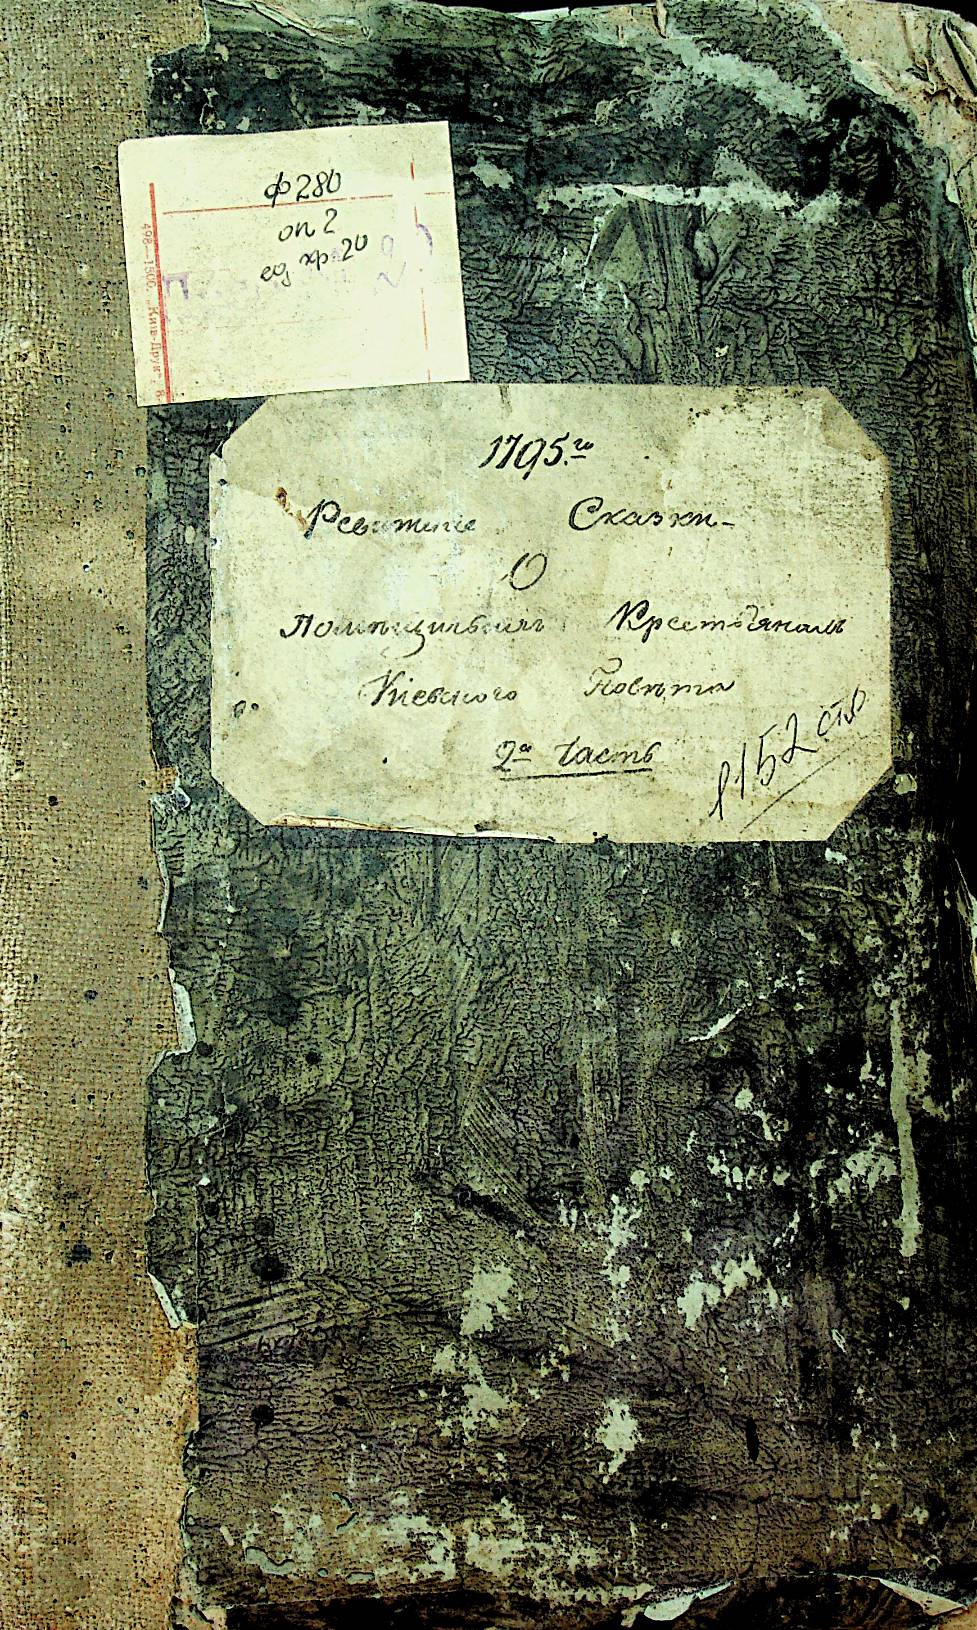 ф 280
оп 2
ед хр 20
498—1500. „Киев-Друк"
1795.го
Ревижние Сказки-
О
Помѣщичьимъ Крестьянамъ
Кіевского Повѣта
2я Часть
1152 стр